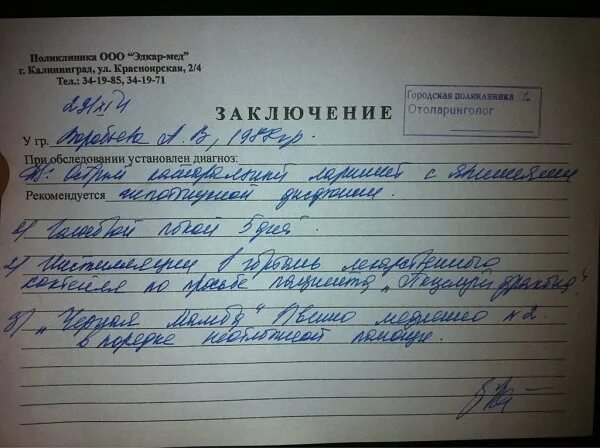 Поликлиника ООО "Эдкар-мед"
г. Калининград, ул. Красноярская, 2/4
Тел.: 34-19-85, 34-19-71
Городская поликлиника
Отоларинголог
ЗАКЛЮЧЕНИЕ
У гр. Воробьева А. В, 1988 гр.
При обследовании установлен диагноз:
Ds: Острый катаральный ларингит с явлениями
Рекомендуется гипотонусной дисфонии.
1) Голосовой покой 5 дней
2) Инстилляции в гортань лекарственного
коктейля по просьбе пациента "Поцелуй дракона"
3) "Черная мамба" в вену медленно N2.
в порядке неотложной помощи.